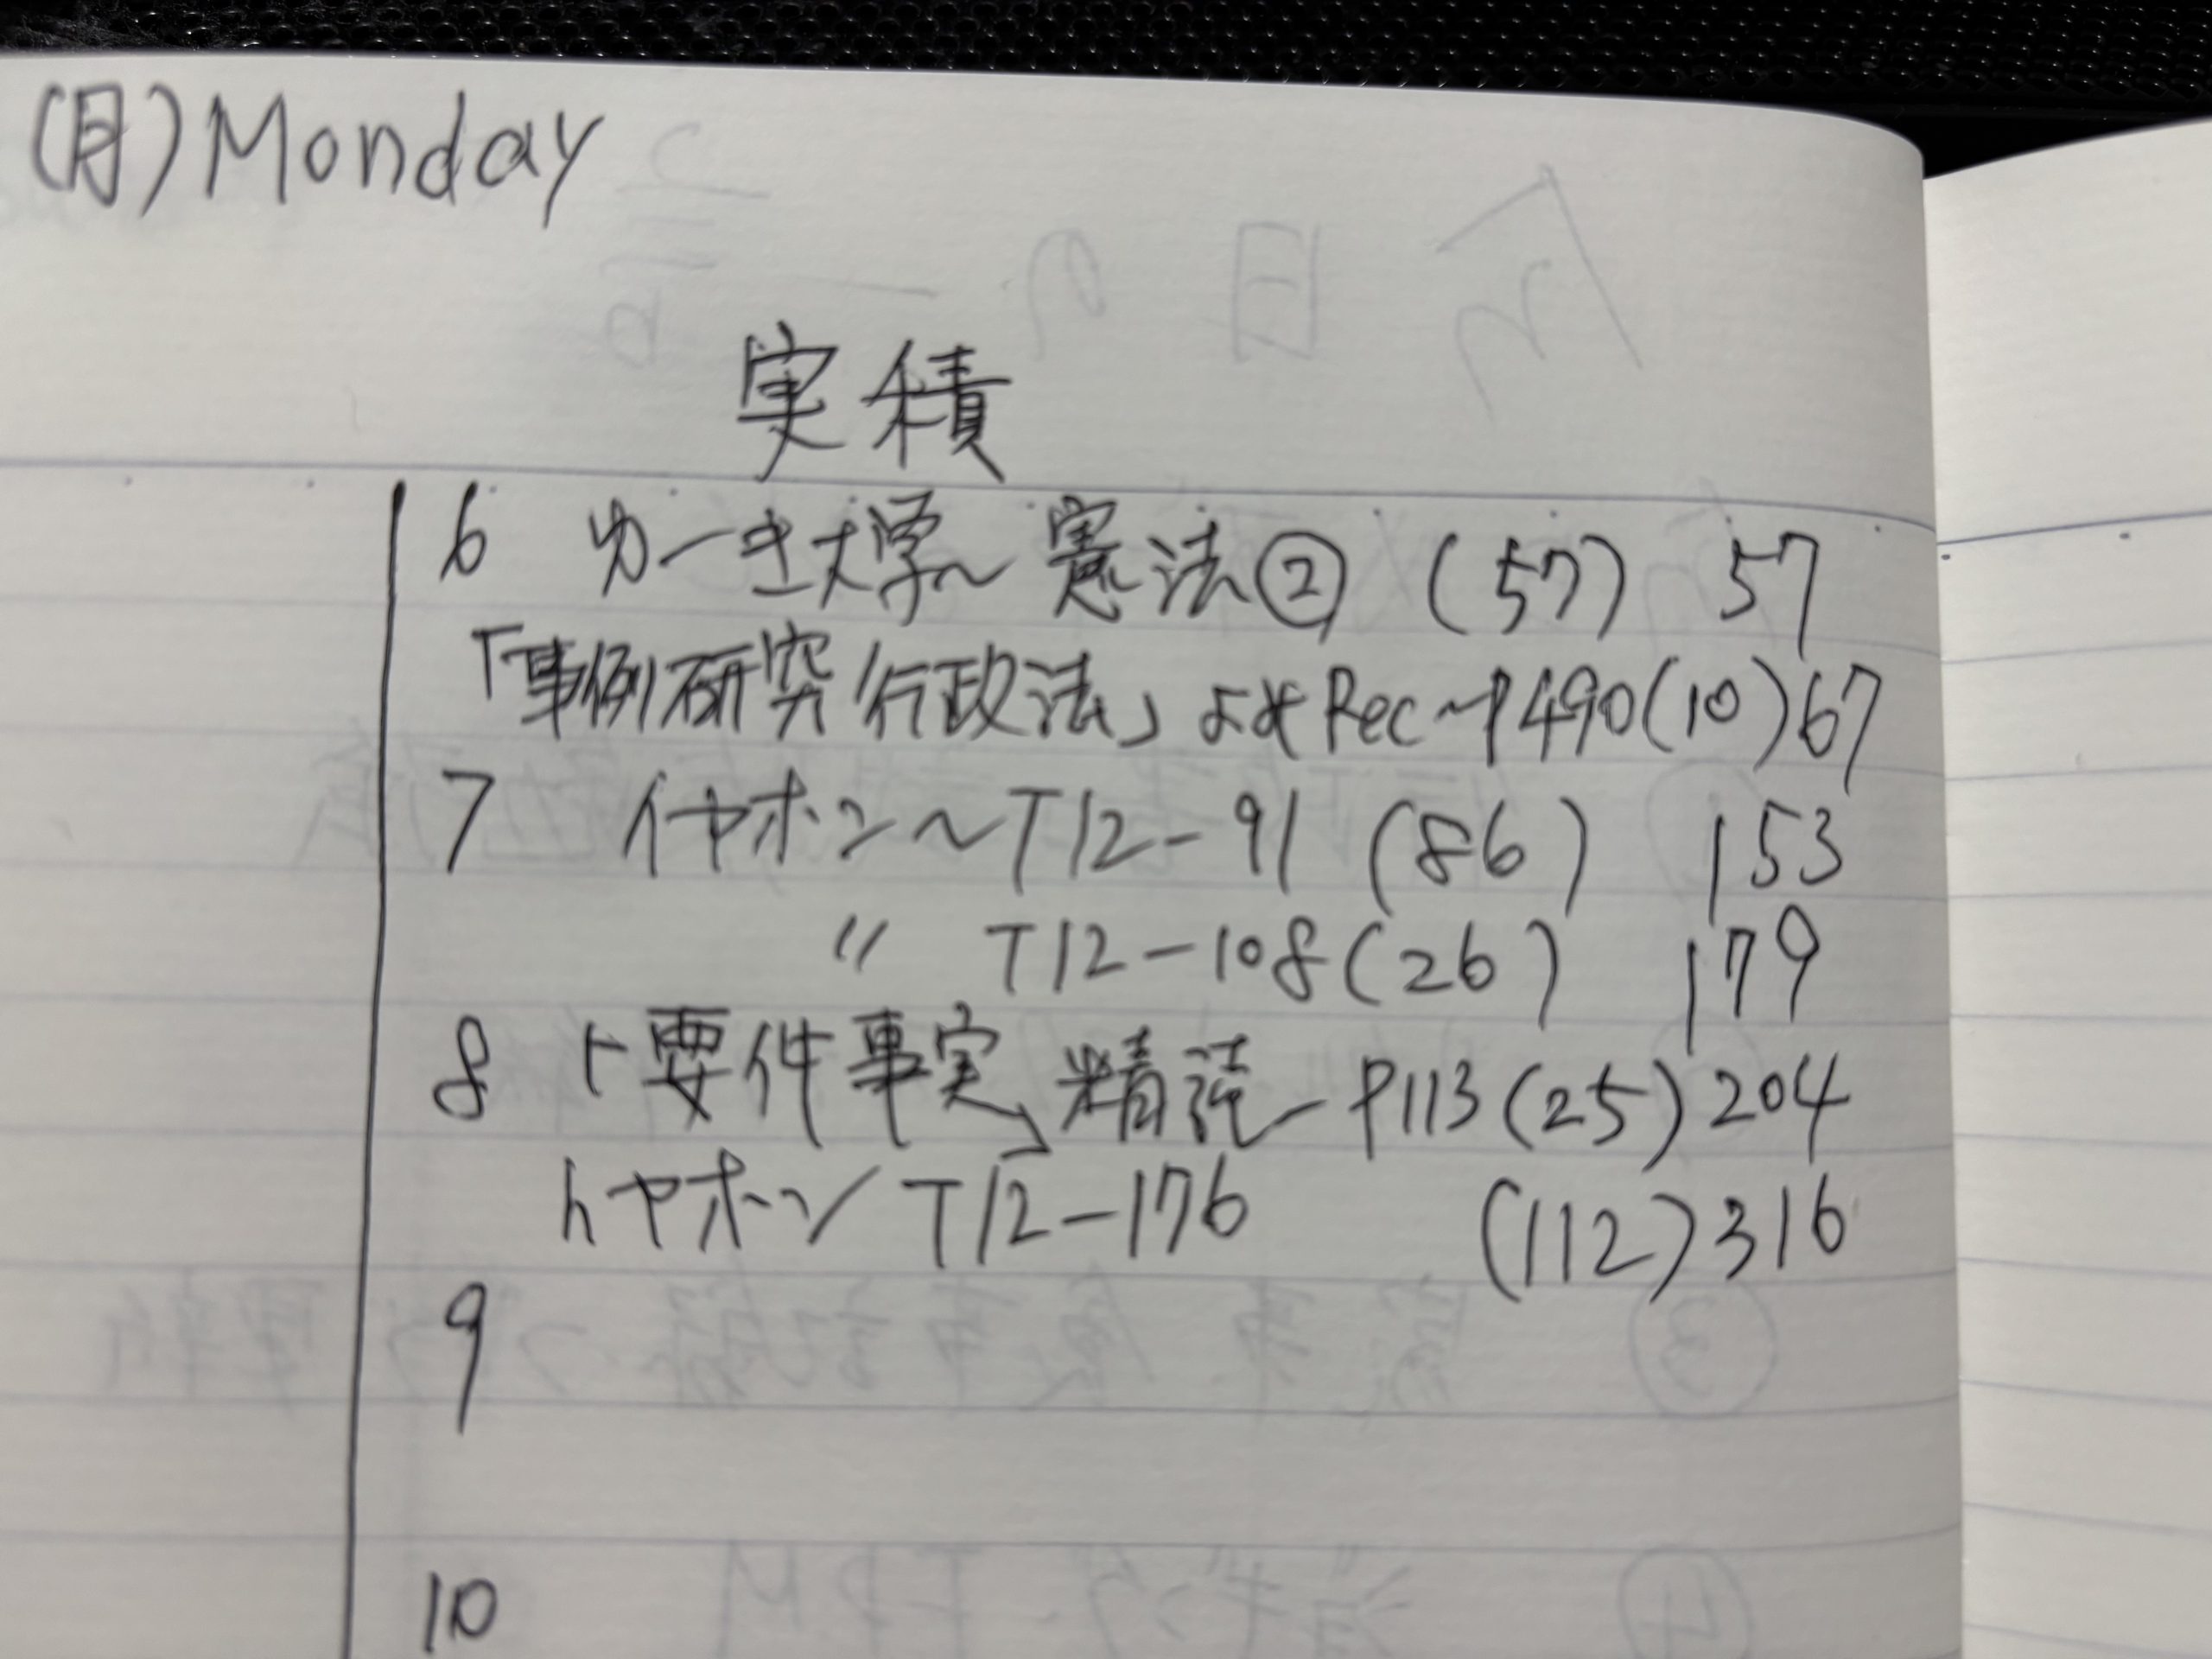 (月) Monday
実積
6 ゆーき大学〜憲法② (57) 57
「事例研究行政法」よみRec〜P490(10)67
7 イヤホン〜T12-91 (86) 153
〃 T12-108(26) 179
8 「要件事実」精読〜P113(25)204
イヤホン T12-176 (112)316
9
10